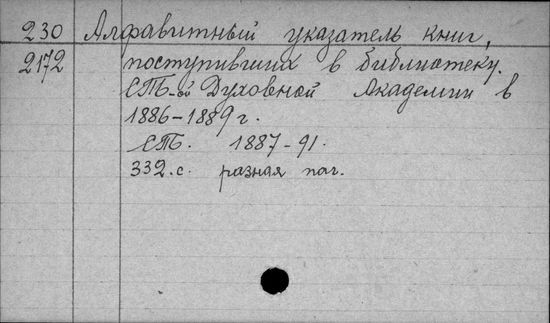 230 Алфавитный указатель книг,
2172 поступивших в библиотеку.
СПБ-ой Духовной Академии в
1886-1889 г.
СПБ. 1887-91.
332.с. разная паг.